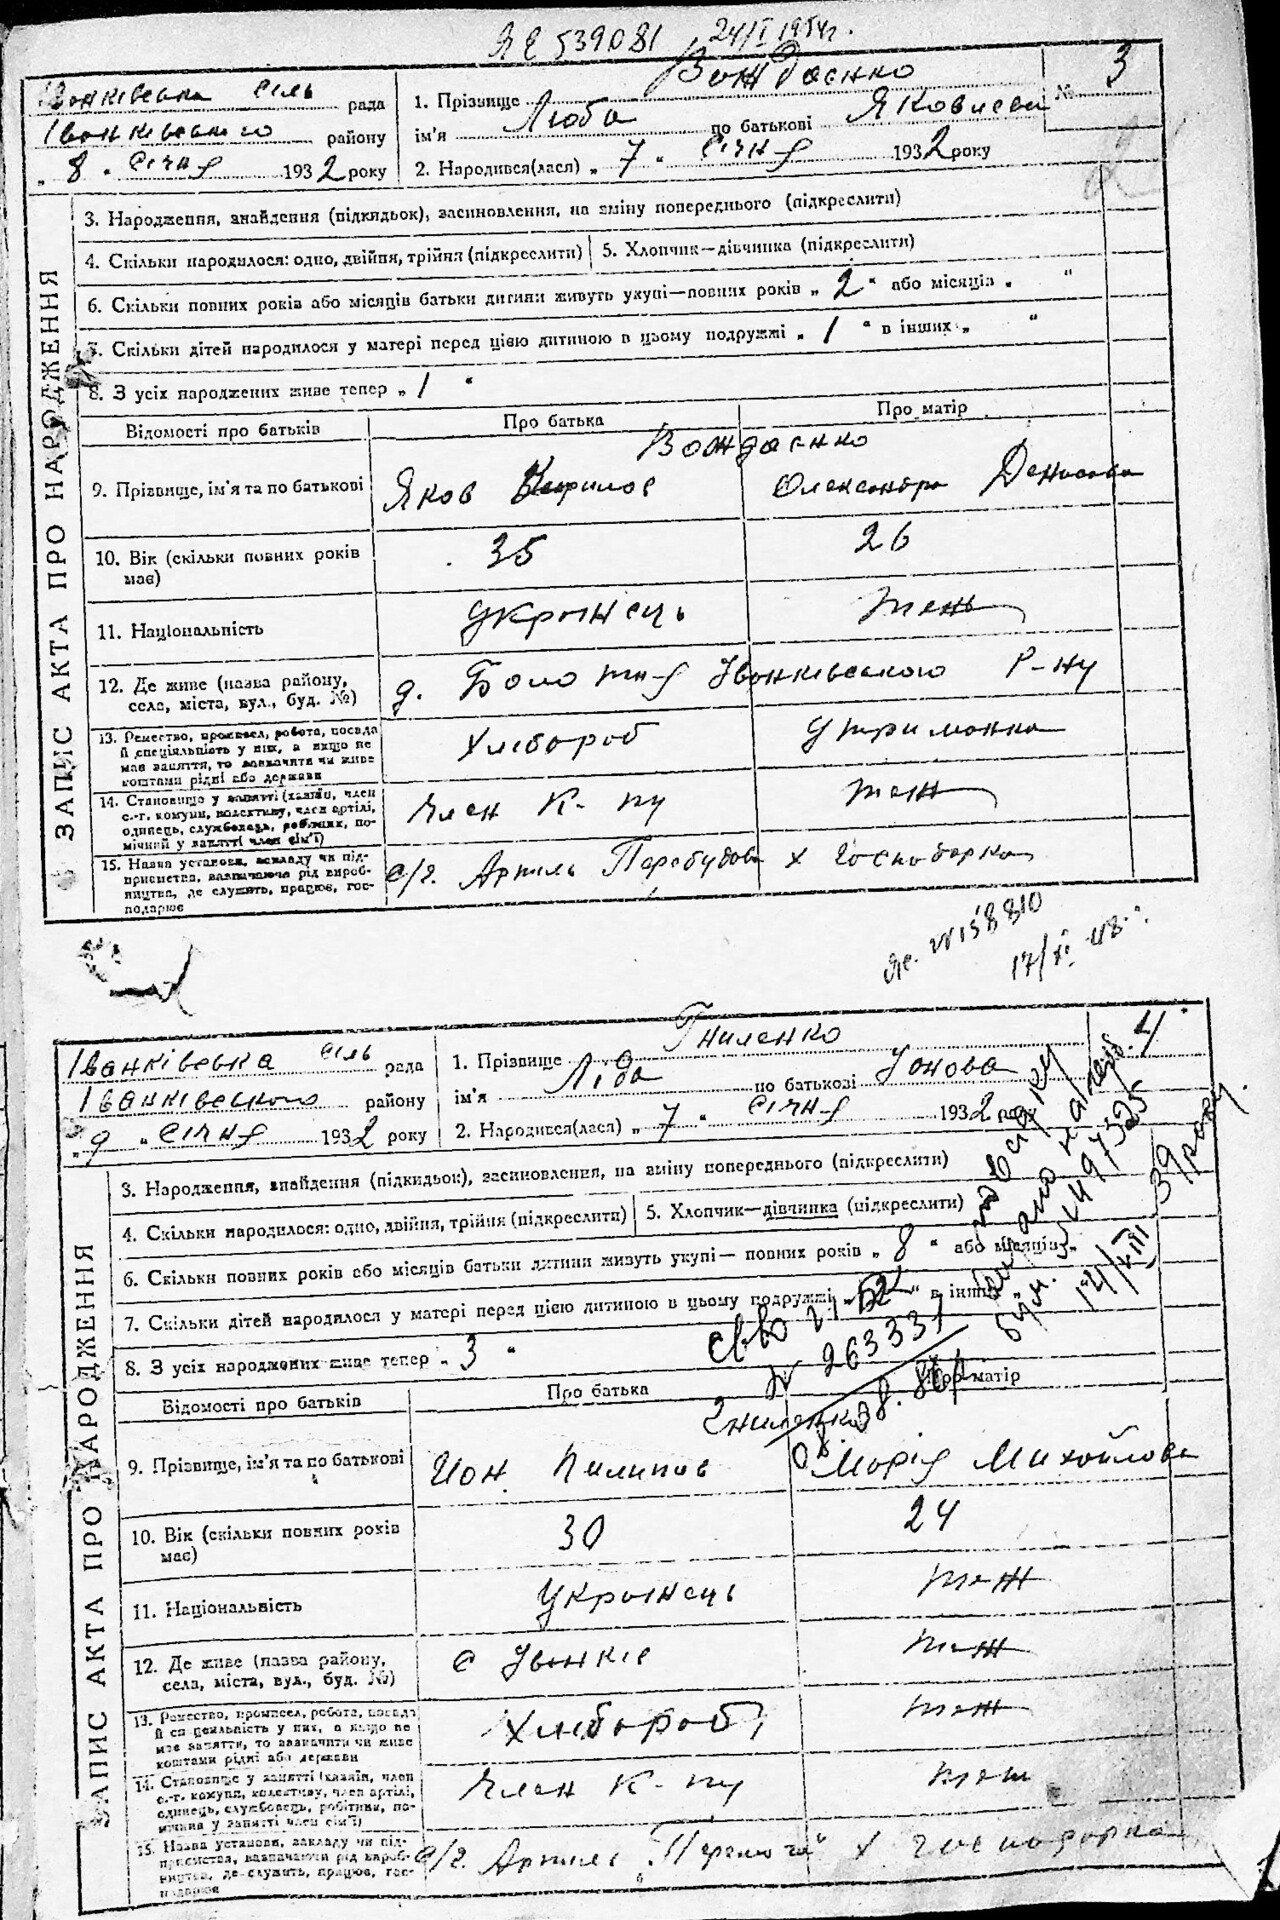 ЯЕ 539081 24/I 1954г.
Іванківська сіль рада
Іванківського району
„ 8 „ січня 1932 року
1. Прізвище Вождаєнко
№ 3
ім'я Люба по батькові Яковлева
2. Народився(лася) „ 7 „ січня 1932 року
ЗАПИС АКТА ПРО НАРОДЖЕННЯ
3. Народження, знайдення (підкидьок), засиновлення, на зміну попереднього (підкреслити)
4. Скільки народилося: одно, двійня, трійня (підкреслити) 5. Хлопчик—дівчинка (підкреслити)
6. Скільки повних років або місяців батьки дитини живуть укупі—повних років „ 2 “ або місяців „ “
7. Скільки дітей народилося у матері перед цією дитиною в цьому подружжі „ 1 “ в інших „ “
8. З усіх народжених живе тепер „ 1 “
Відомості про батьків Про батька Про матір
Вождаєнко
9. Прізвище, ім'я та по батькові Яков Кирилов Олександра Денисова
10. Вік (скільки повних років має) 35 26
11. Національність Українець теж
12. Де живе (назва району, села, міста, вул., буд. №) д. Болотня Іванківського Р-ну
13. Ремество, промисел, робота, посада й спеціяльність у них, а якщо не має заняття, то зазначити чи живе коштами рідні або держави Хлібороб Утриманка
14. Становище у занятті (хазяїн, член с.-г. комуни, колективу, член артілі, одинець, службовець, робітник, помічний у занятті член сім'ї) Член К-пу теж
15. Назва установи, закладу чи підприємства, зазначаючи рід виробництва, де служить, працює, господарює с/г. Артиль Перебудова х господарка
17/XI 48
Іванківська сіль рада
Іванківського району
„ 9 „ січня 1932 року
1. Прізвище Гниленко
4
ім'я Люба по батькові Іонова
2. Народився(лася) „ 7 „ січня 1932 року
ЗАПИС АКТА ПРО НАРОДЖЕННЯ
3. Народження, знайдення (підкидьок), засиновлення, на зміну попереднього (підкреслити)
4. Скільки народилося: одно, двійня, трійня (підкреслити) 5. Хлопчик—дівчинка (підкреслити)
6. Скільки повних років або місяців батьки дитини живуть укупі— повних років „ 8 “ або місяців „
7. Скільки дітей народилося у матері перед цією дитиною в цьому подружжі „ 2 “ в інших „
8. З усіх народжених живе тепер „ 3 “
№ 263331
497525
39 року
Відомості про батьків Про батька Про матір
Гниленко
9. Прізвище, ім'я та по батькові Ион Пилипов Марія Михайлова
10. Вік (скільки повних років має) 30 24
11. Національність Українець теж
12. Де живе (назва району, села, міста, вул., буд. №) с Іванків теж
13. Ремество, промисел, робота, посада й спеціяльність у них, а якщо не має заняття, то зазначити чи живе коштами рідні або держави Хлібороб теж
14. Становище у занятті (хазяїн, член с.-г. комуни, колективу, член артілі, одинець, службовець, робітник, помічний у занятті член сім'ї) Член К-пу теж
15. Назва установи, закладу чи підприємства, зазначаючи рід виробництва, де служить, працює, господарює с/г. Артиль „Перемога“ х господарка